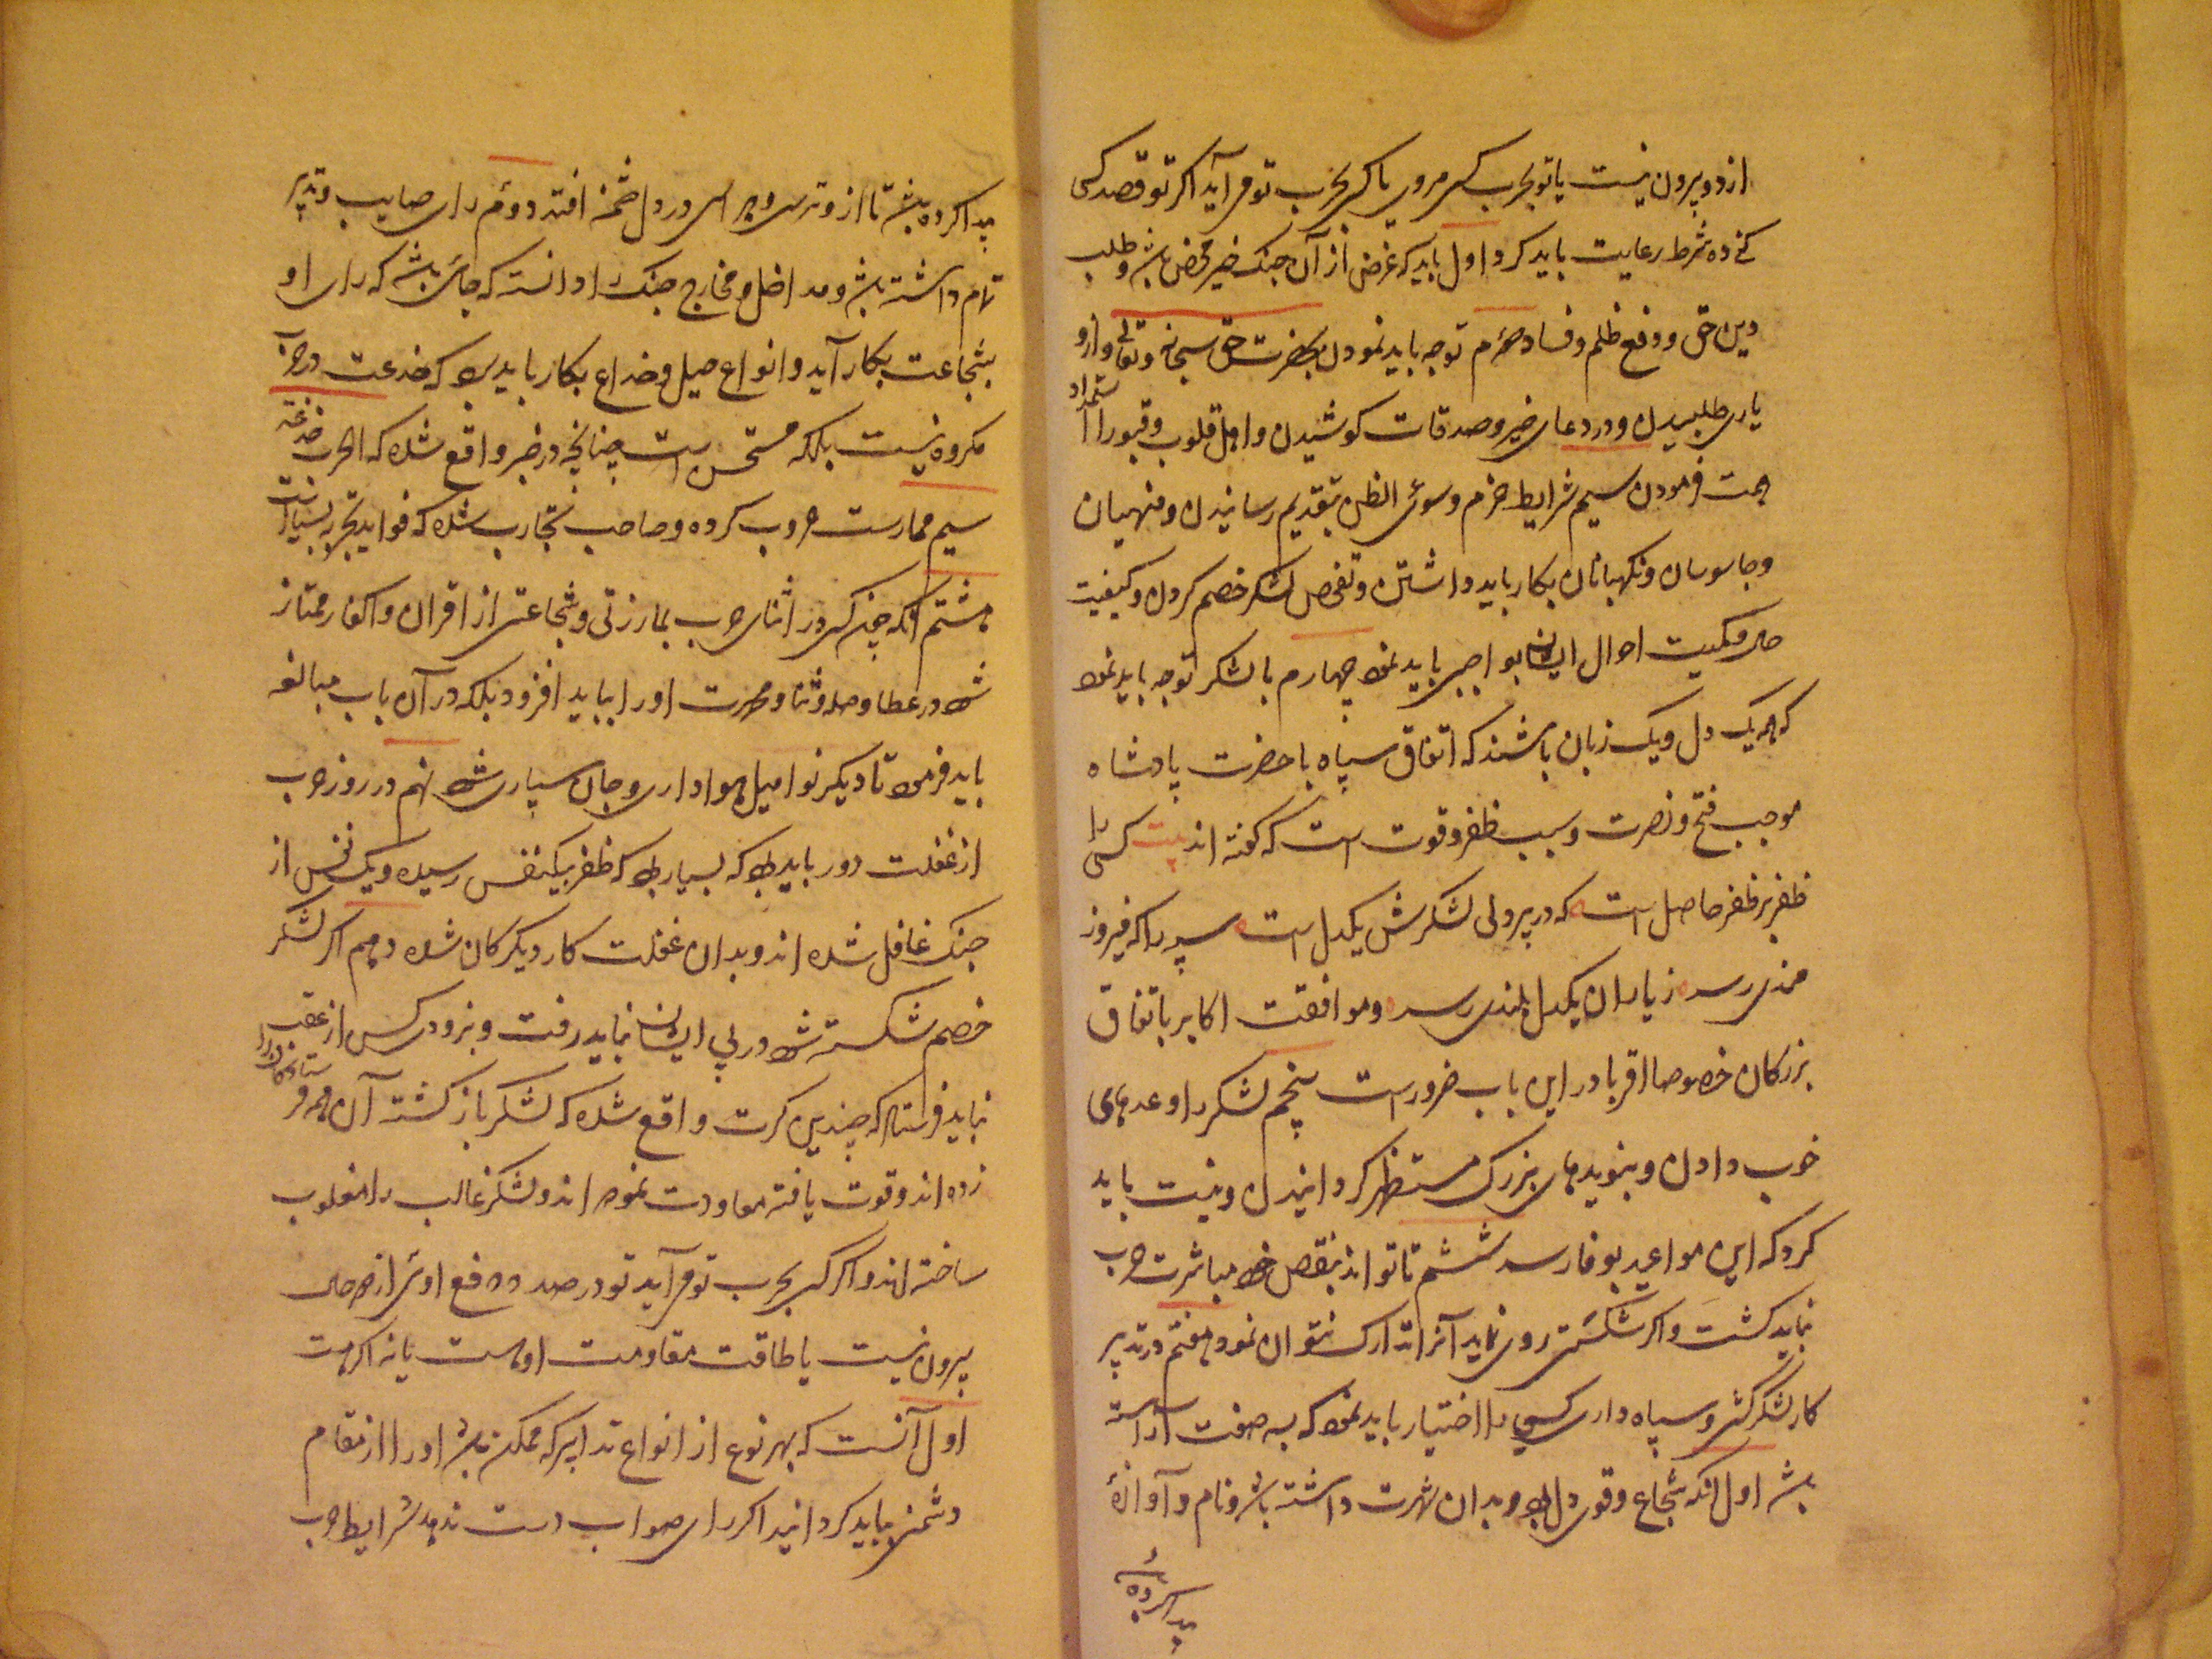 از دو بیرون نیست یا تو بحرب کسی میروی یا کسی بحرب تو می آید اگر تو قصد کسی
کنی ده شرط رعایت باید کرد اول باید که غرض از آن جنگ خیر محض باشد و طلب
دین حق و دفع ظلم و فساد دوم توجه باید نمودن بحضرت حق سبحانه و تعالی و ازو
یاری طلبیدن و در دعای خیر و صدقات کوشیدن و اهل قلوب و قبور را استمداد
همت فرمودن سیم شرایط حزم و سوئ الظن بتقدیم رسانیدن و منهیان
و جاسوسان و نگهبانان بکار باید داشتن و تفحص لشکر خصم کردن و کیفیت
حال و کمیت احوال ایشان بواجبی باید نمود چهارم با لشکر توجه باید نمود
که همه یک دل و یک زبان باشند که اتفاق سپاه با حضرت پادشاه
موجب فتح و نصرت و سبب ظفر و قوت است که گفته اند بیت کسی را
ظفر بر ظفر حاصل است که در پردلی لشکرش یکدل است سپه را که فیروز
مندی رسد زیاران یکدل بلندی رسد و موافقت اکابر باتفاق
بزرگان خصوصا اقربا در این باب ضرور است پنجم لشکر را وعدهای
خوب دادن و بنویدهای بزرگ مستظهر گردانیدن و نیت باید
کرد که این مواعید بوفا رسد ششم تا تواند بنفس خود مباشرت حرب
نباید گشت و اگر شکستی روی نماید آنرا تدارک نتوان نمود هفتم در تدبیر
کار لشکرکشی و سپاه داری کسی را اختیار باید نمود که به صفت آراسته
باشد اول آنکه شجاع و قوی دل بود و بدان شهرت داشته باشد و نام و آوازهٔ
پیدا کرده باشد
پیدا کرده باشد تا ازو ترس و هراس در دل خصم افتد دوئم رای صایب و تدبیر
تمام داشته باشد و مداخل و مخارج جنگ را دانسته که جائی باشد که رای او
بشجاعت بکار آید و انواع حیل و خداع بکار باید برد که خدعت در حرب
مکروه نیست بلکه مستحسن است چنانچه در خبر واقع شده که الحرب خدعة
سیم ممارست حروب کرده و صاحب تجارب شده که فواید تجربه بسیار است
هشتم آنکه چون کسی در اثنای حرب بمبارزتی و شجاعتی از اقران و اکفا ممتاز
شود در عطا و صله و ثنا و محمدت او را بباید افزود بلکه در آن باب مبالغه
باید فرمود تا دیگرنرا میل هواداری و جان سپاری شود نهم در روز حرب
از غفلت دور باید بود که بسیار بود که ظفر بیکنفس رسیده و یک نفس از
جنگ غافل شده اند و بدان غفلت کار دیگرکان شده دهم اگر لشکر
خصم شکسته شود در پی ایشان نباید رفت و بزودی کس از عقب
نباید فرستاد که چندین کرت واقع شده که لشکر باز گشته آن همه فرستادگانرا
زده اند و قوت یافته معاودت نموده اند و لشکر غالب را مغلوب
ساخته اند و اگر کسی بحرب تو می آید تو در صدد دفع اوئی از دو حال
بیرون نیست یا طاقت مقاومت او هست یا نه اگر هست
اول آنست که بهر نوع از انواع تدابیر که ممکن باشد او را از مقام
دشمنی بباید گردانید اگر رای صواب دست ندهد شرایط حرب